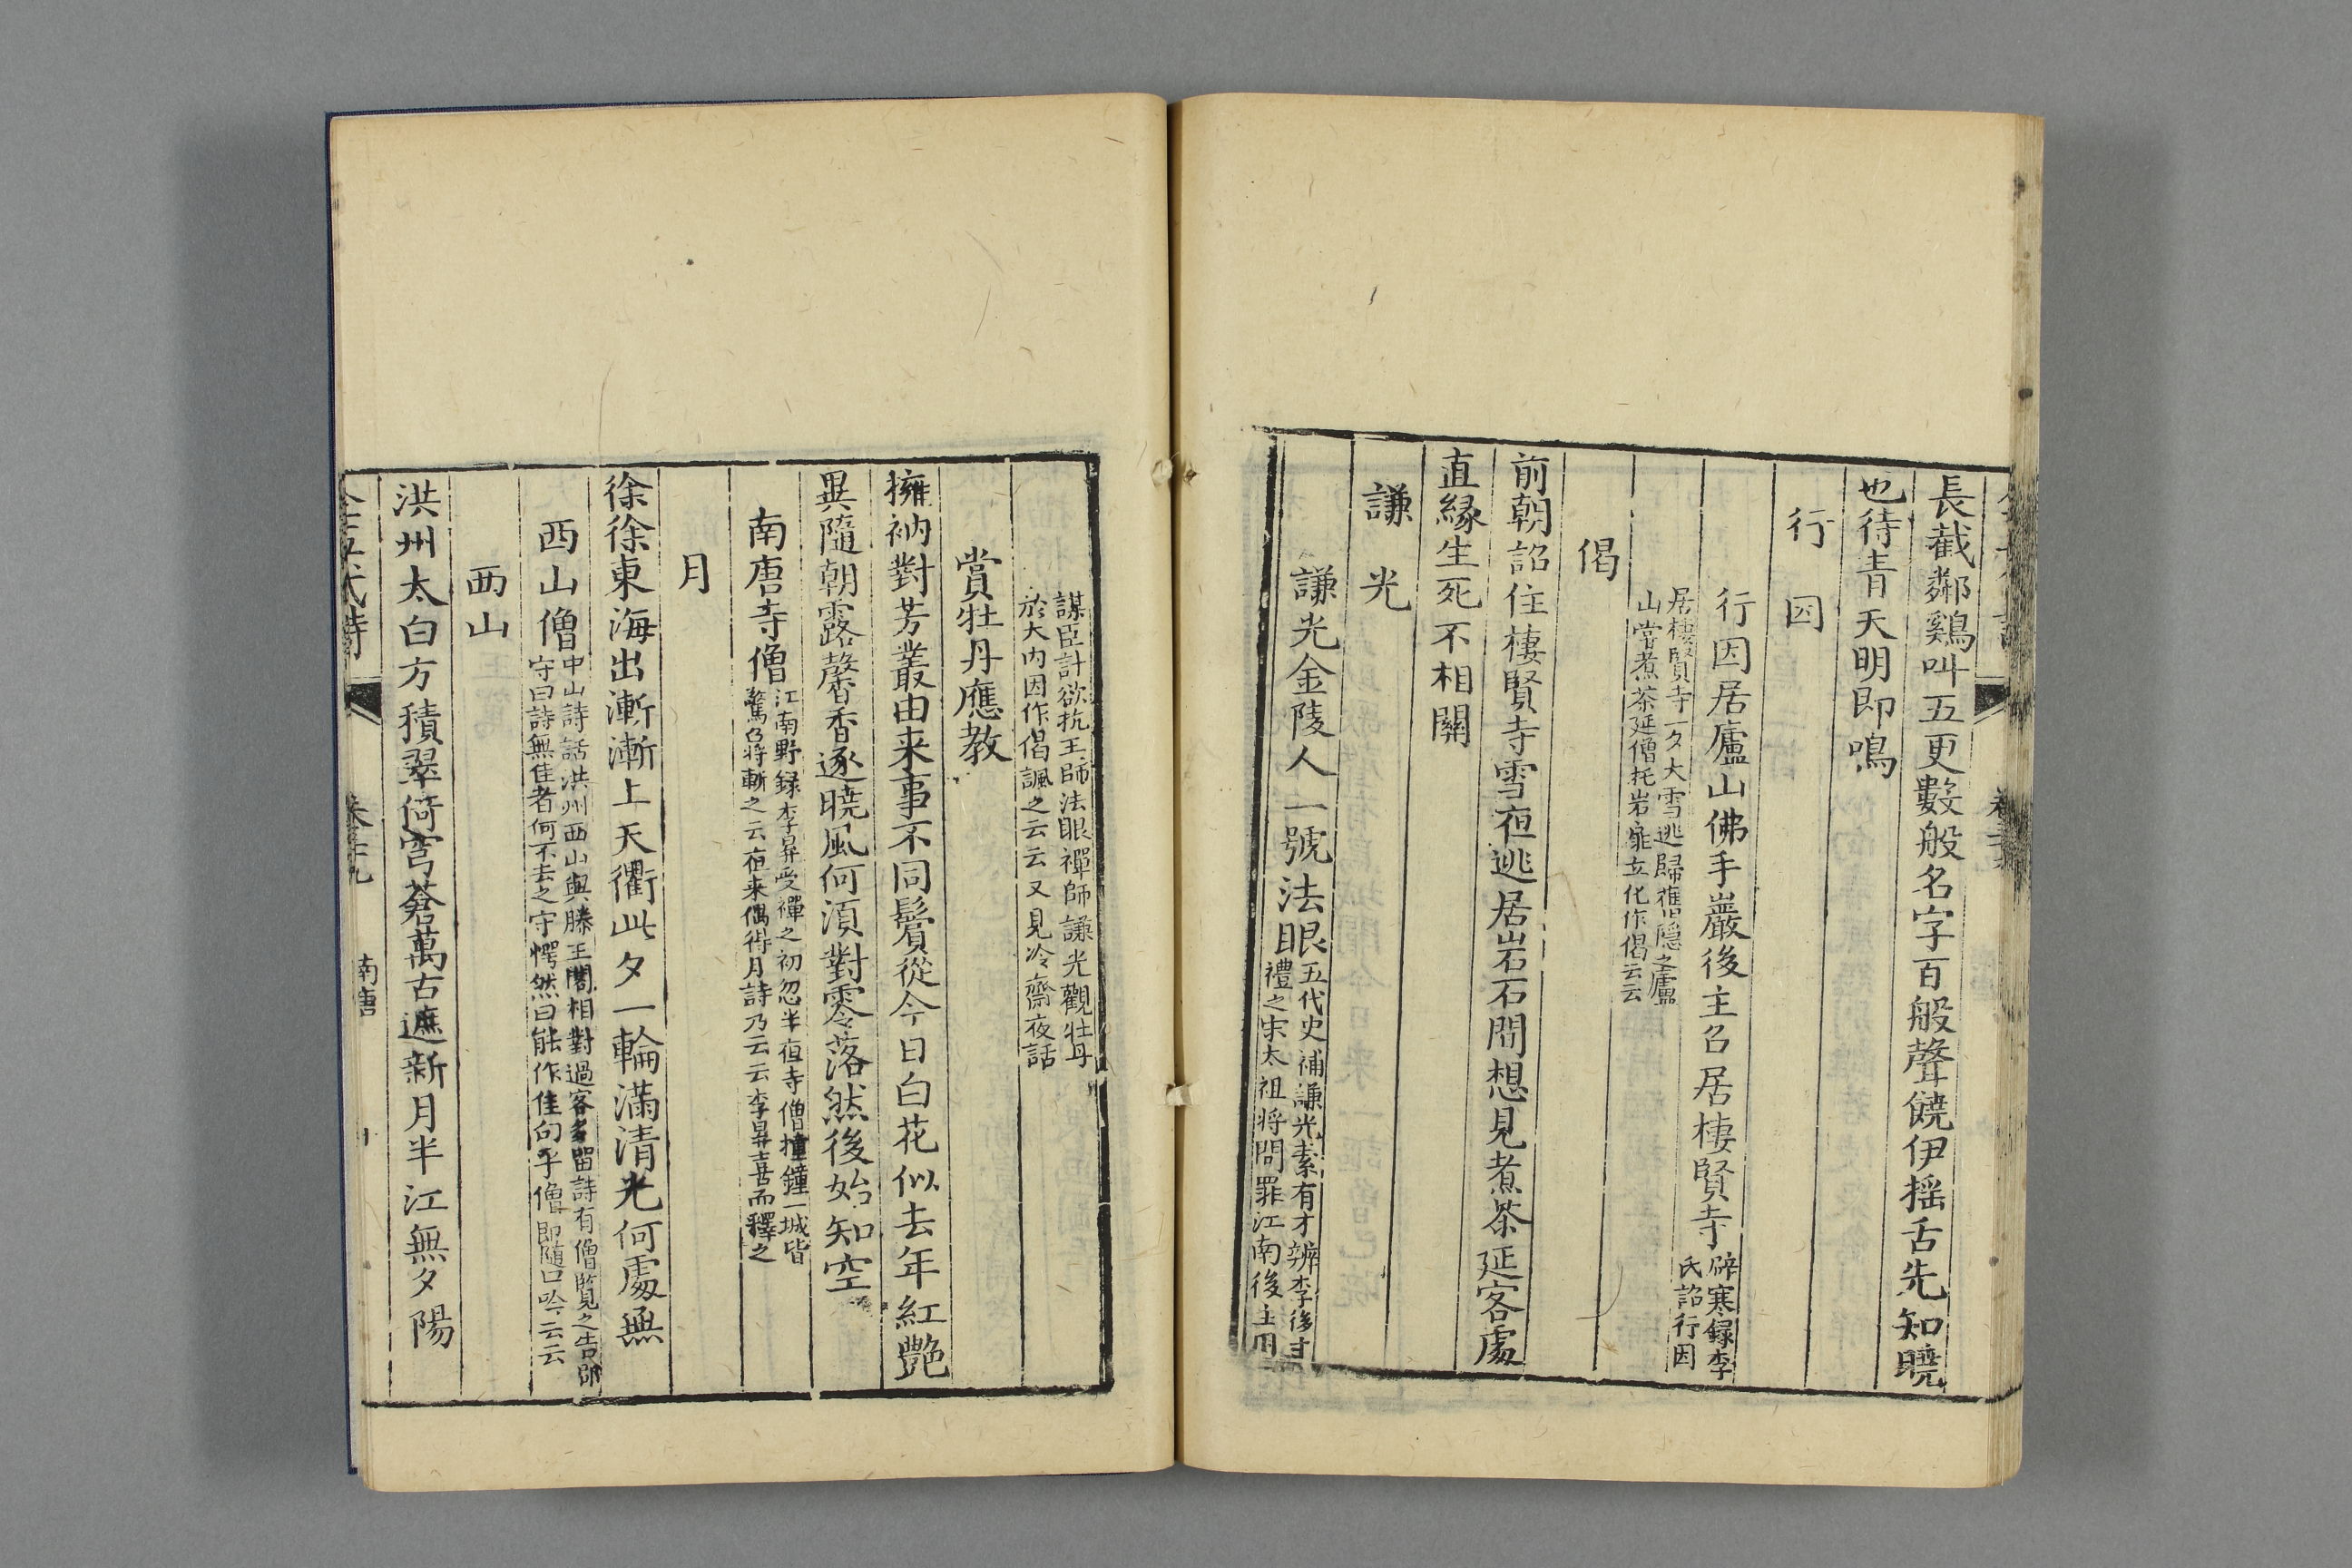 長截鄰鷄叫五更數般名字百般聲饒伊揺舌先知曉
也待青天明即鳴
行因
行因居廬山佛手巖後主召居棲賢寺
辟寒録李
氏詔行因
居棲賢寺一夕大雪逃歸舊隱之廬
山嘗煮茶延僧托岩扉立化作偈云云
偈
前朝詔住棲賢寺雪夜逃居岩石間想見煮茶延客處
直縁生死不相關
謙光
謙光金陵人一號法眼
五代史補謙光素有才辨李後主
禮之宋太祖将問罪江南後主用
謀臣計欲抗王師法眼禪師謙光觀牡丹
於大内因作偈諷之云云又見冷齋夜話
賞牡丹應教
擁衲對芳叢由来事不同鬢從今日白花似去年紅艷
異隨朝露馨香逐曉風何須對零落然後始知空
南唐寺僧
江南野録李昇受禪之初忽半夜寺僧撞鐘一城皆
驚召将斬之云夜来偶得月詩乃云云李昇喜而釋之
月
徐徐東海出漸漸上天衢此夕一輪滿清光何處無
西山僧
中山詩話洪州西山與滕王閣相對過客多留詩有僧覧之告郡
守曰詩無佳者何不去之守愕然曰能作佳句乎僧即随口吟云云
西山
洪州太白方積翠倚穹蒼萬古遮新月半江無夕陽
全五代詩
南唐